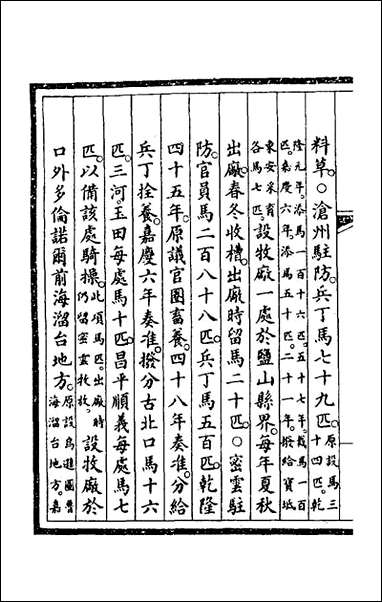 料草。○滄州駐防。兵丁馬七十九匹。原設馬三十四匹。乾
隆元年。添馬一百十六匹。五十七年。裁馬一百匹。嘉慶六年。添馬五十匹。二十一年。撥給寶坻
東安采育各馬七匹。設牧廠一處於鹽山縣界。每年夏秋
出廠。春冬收槽。出廠時留馬二十匹。○密雲駐
防。官員馬二百八十八匹。兵丁馬五百匹。乾隆
四十五年。原議官圈畜養。四十八年奏准。分給
兵丁拴養。嘉慶六年奏准。撥分古北口馬十六
匹。三河。玉田每處馬十匹。昌平順義每處馬七
匹。以備該處騎操。此項馬匹。出廠時仍留密雲牧放。設牧廠於
口外多倫諾爾前海溜台地方。原設烏遜圖魯海溜台地方。嘉